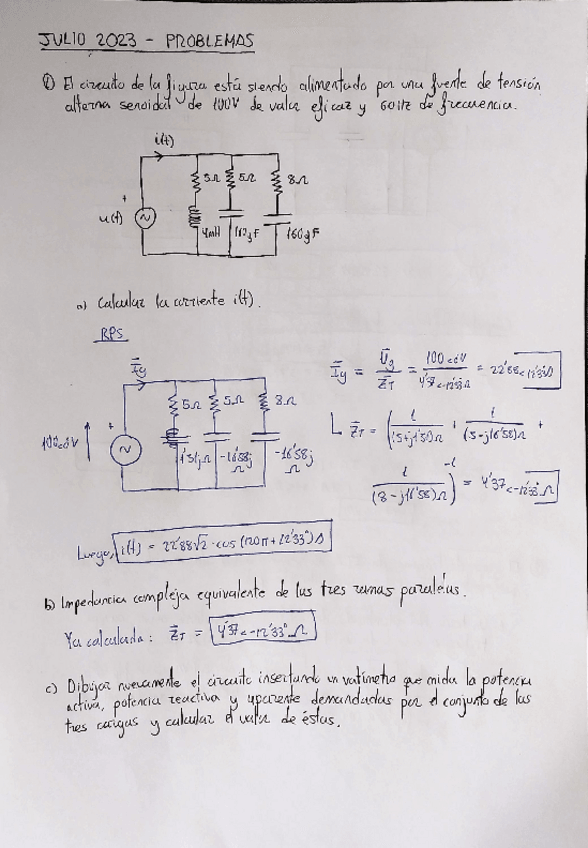 JULIO 2023 - PROBLEMAS
① El circuito de la figura está siendo alimentado por una fuente de tensión
alterna senoidal de 100V de valor eficaz y 60Hz de frecuencia.
i(t)
5Ω 5Ω 8Ω
+
u(t)
4mH 160μF
a) Calcular la corriente i(t).
RPS
Īg
5Ω 5Ω 8Ω
+
1'51jΩ -16'58j Ω -16'58j Ω
Īg = Ūg / Z̄T = 100∠0V / 4'37∠-12'33Ω = 22'88∠12'33
Z̄T = ( 1 / (5+j1'51)Ω + 1 / (5-j16'58)Ω +
1 / (8-j16'58)Ω )^-1 = 4'37∠-12'33Ω
Luego, i(t) = 22'88√2 · cos (120π + 12'33°) A
b) Impedancia compleja equivalente de las tres ramas paralelas.
Ya calculada: Z̄T = 4'37∠-12'33° Ω
c) Dibujar nuevamente el circuito insertando un vatímetro que mida la potencia
activa, potencia reactiva y aparente demandadas por el conjunto de las
tres cargas y calcular el valor de éstas.